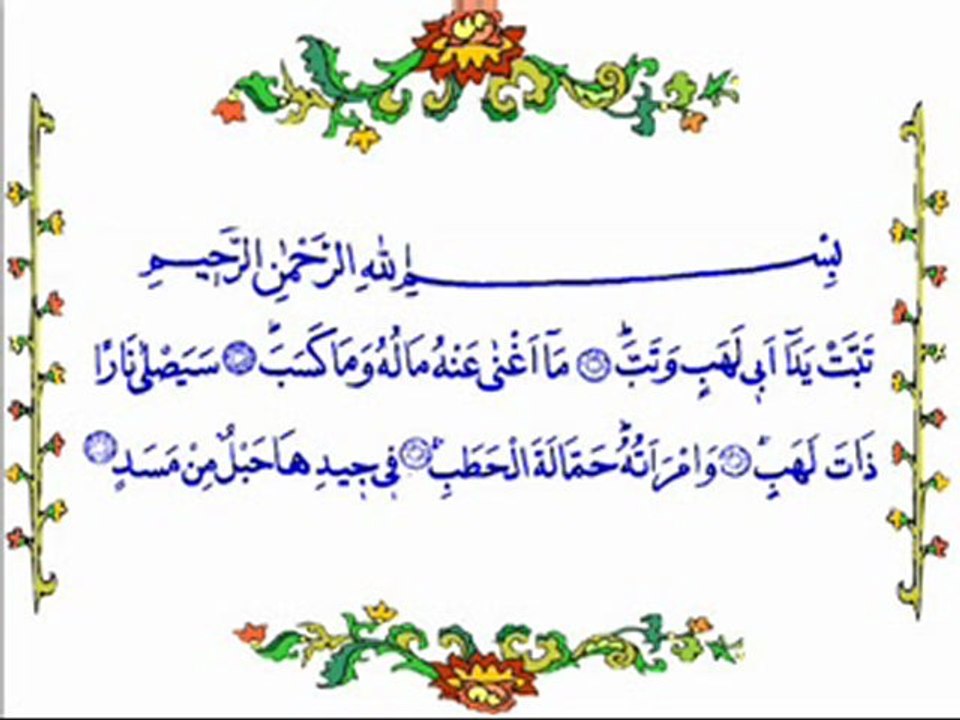 بِسْــــــــمِ اللهِ الرَّحْمٰنِ الرَّحِيْمِ
تَبَّتْ يَدَآ اَبِيْ لَهَبٍ وَّتَبَّ ؕ ۝ مَآ اَغْنٰى عَنْهُ مَالُهٗ وَمَا كَسَبَ ؕ ۝ سَيَصْلٰى نَارًا
ذَاتَ لَهَبٍ ۚ ۝ وَّامْرَاَتُهٗ ؕ حَمَّالَةَ الْحَطَبِ ۚ ۝ فِيْ جِيْدِهَا حَبْلٌ مِّنْ مَّسَدٍ ۝